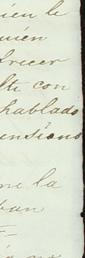 ien le
quién
frecer
lte con
hablado
ensions
me la
ban